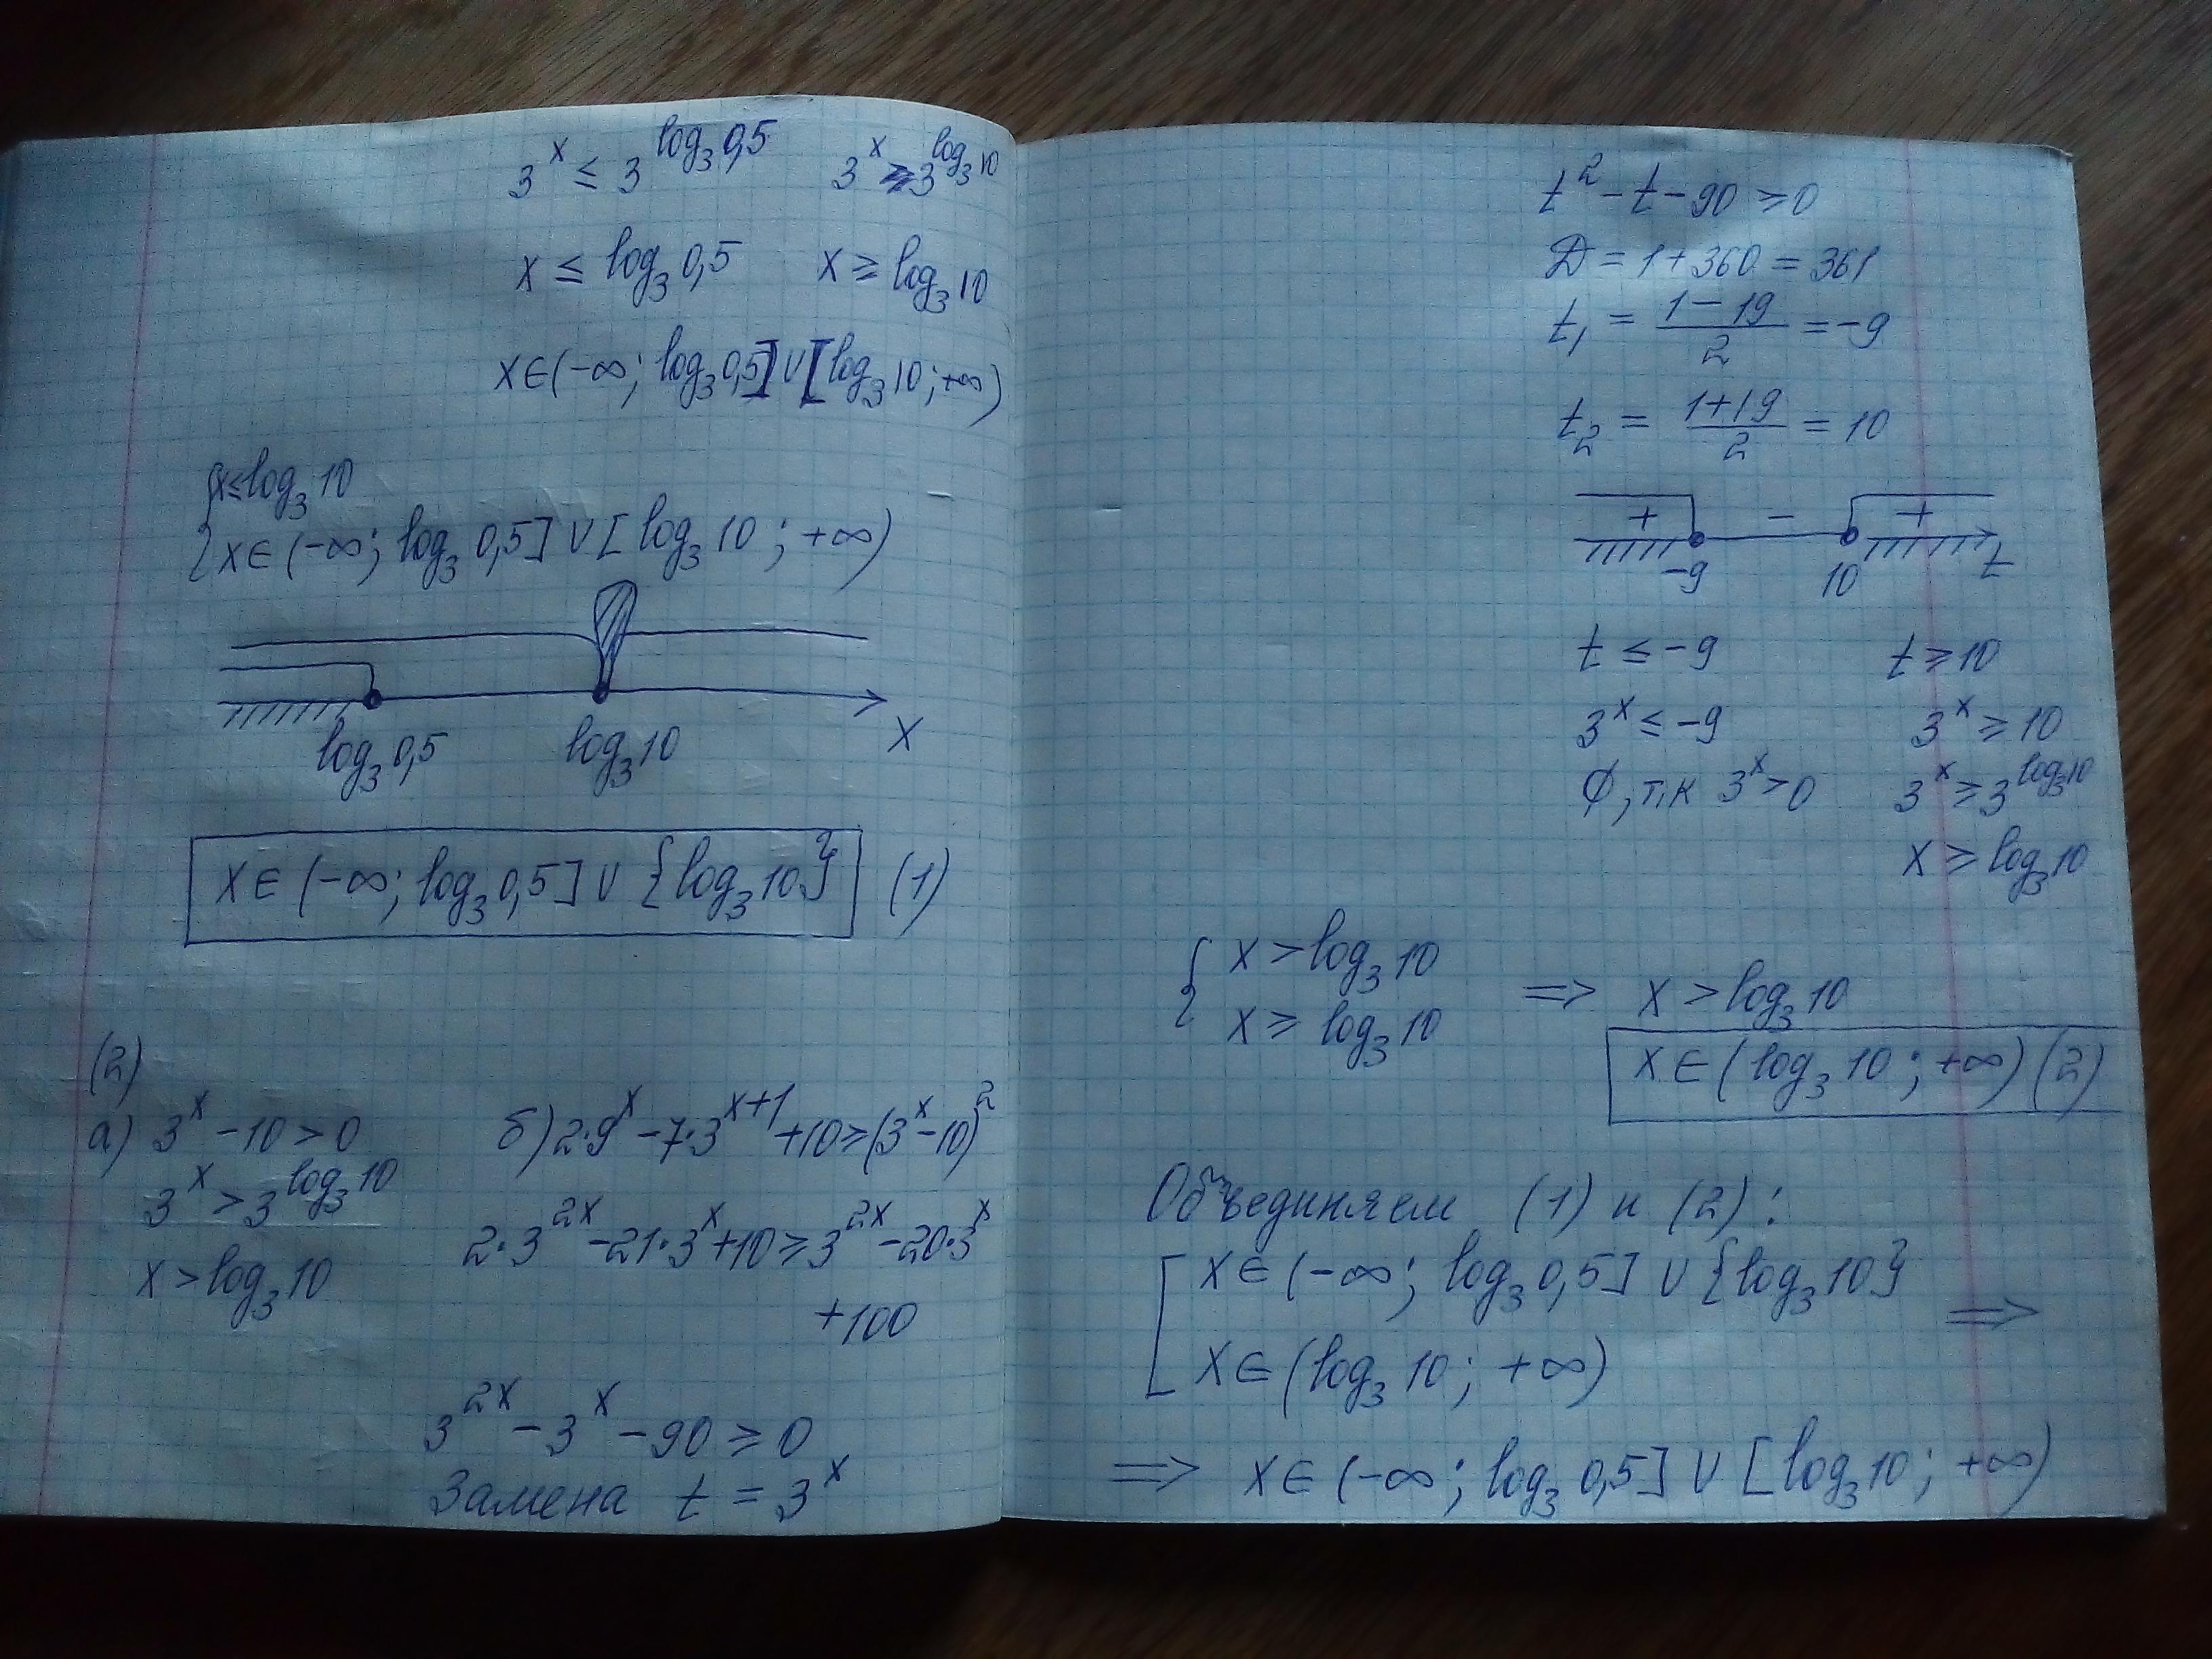 3^x ≤ 3^{log₃0,5}   3^x ≥ 3^{log₃10}
x ≤ log₃0,5   x ≥ log₃10
x∈(-∞; log₃0,5]∪[log₃10; +∞)
{ x≤log₃10
x∈(-∞; log₃0,5]∪[log₃10; +∞)
log₃0,5   log₃10   x
x∈(-∞; log₃0,5]∪{log₃10}   (1)
(2)
а) 3^x - 10 > 0   б) 2·9^x - 7·3^{x+1} + 10 ≥ (3^x - 10)²
3^x > 3^{log₃10}
2·3^{2x} - 21·3^x + 10 ≥ 3^{2x} - 20·3^x
x > log₃10
+100
3^{2x} - 3^x - 90 ≥ 0
Замена t = 3^x
t² - t - 90 ≥ 0
D = 1 + 360 = 361
t₁ = (1 - 19)/2 = -9
t₂ = (1 + 19)/2 = 10
+ - +
-9   10   t
t ≤ -9   t ≥ 10
3^x ≤ -9   3^x ≥ 10
∅, т.к 3^x > 0   3^x ≥ 3^{log₃10}
x ≥ log₃10
{ x > log₃10
x ≥ log₃10   => x > log₃10
x∈(log₃10; +∞) (2)
Объединяем (1) и (2):
[ x∈(-∞; log₃0,5]∪{log₃10}
x∈(log₃10; +∞)   =>
=> x∈(-∞; log₃0,5]∪[log₃10; +∞)